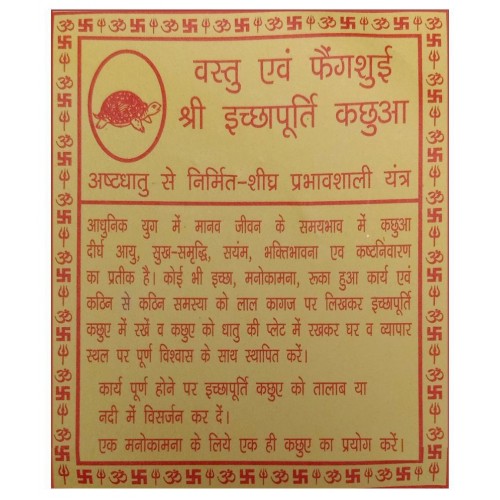 वस्तु एवं फैंगशुई
श्री इच्छापूर्ति कछुआ
अष्टधातु से निर्मित-शीघ्र प्रभावशाली यंत्र
आधुनिक युग में मानव जीवन के समयभाव में कछुआ
दीर्घ आयु, सुख-समृद्धि, सयंम, भक्तिभावना एव कष्टनिवारण
का प्रतीक है। कोई भी इच्छा, मनोकामना, रूका हुआ कार्य एवं
कठिन से कठिन समस्या को लाल कागज पर लिखकर इच्छापूर्ति
कछुए में रखें व कछुए को धातु की प्लेट में रखकर घर व व्यापार
स्थल पर पूर्ण विश्वास के साथ स्थापित करें।
कार्य पूर्ण होने पर इच्छापूर्ति कछुए को तालाब या
नदी में विसर्जन कर दें।
एक मनोकामना के लिये एक ही कछुए का प्रयोग करें।